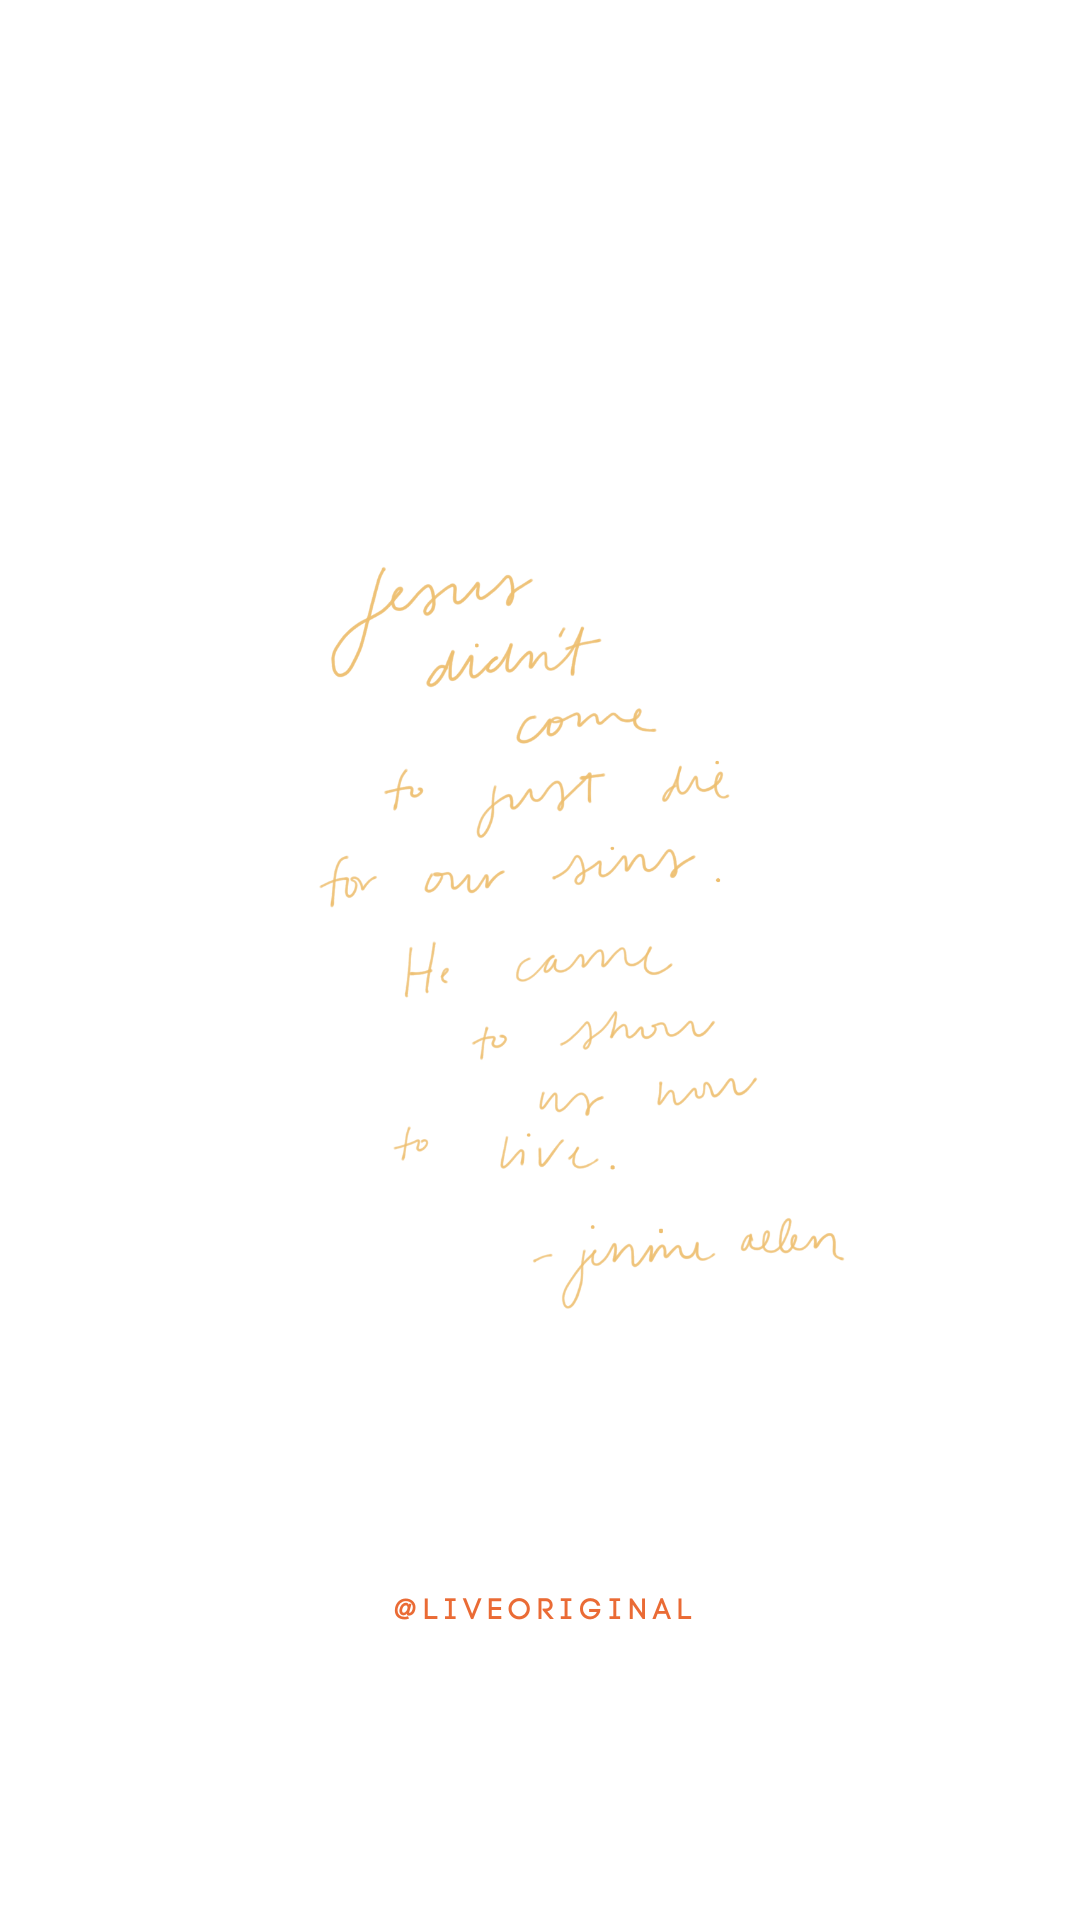 Jesus
didn't
come
to just die
for our sins.
He came
to show
us how
to live.
- jennie allen
@LIVEORIGINAL